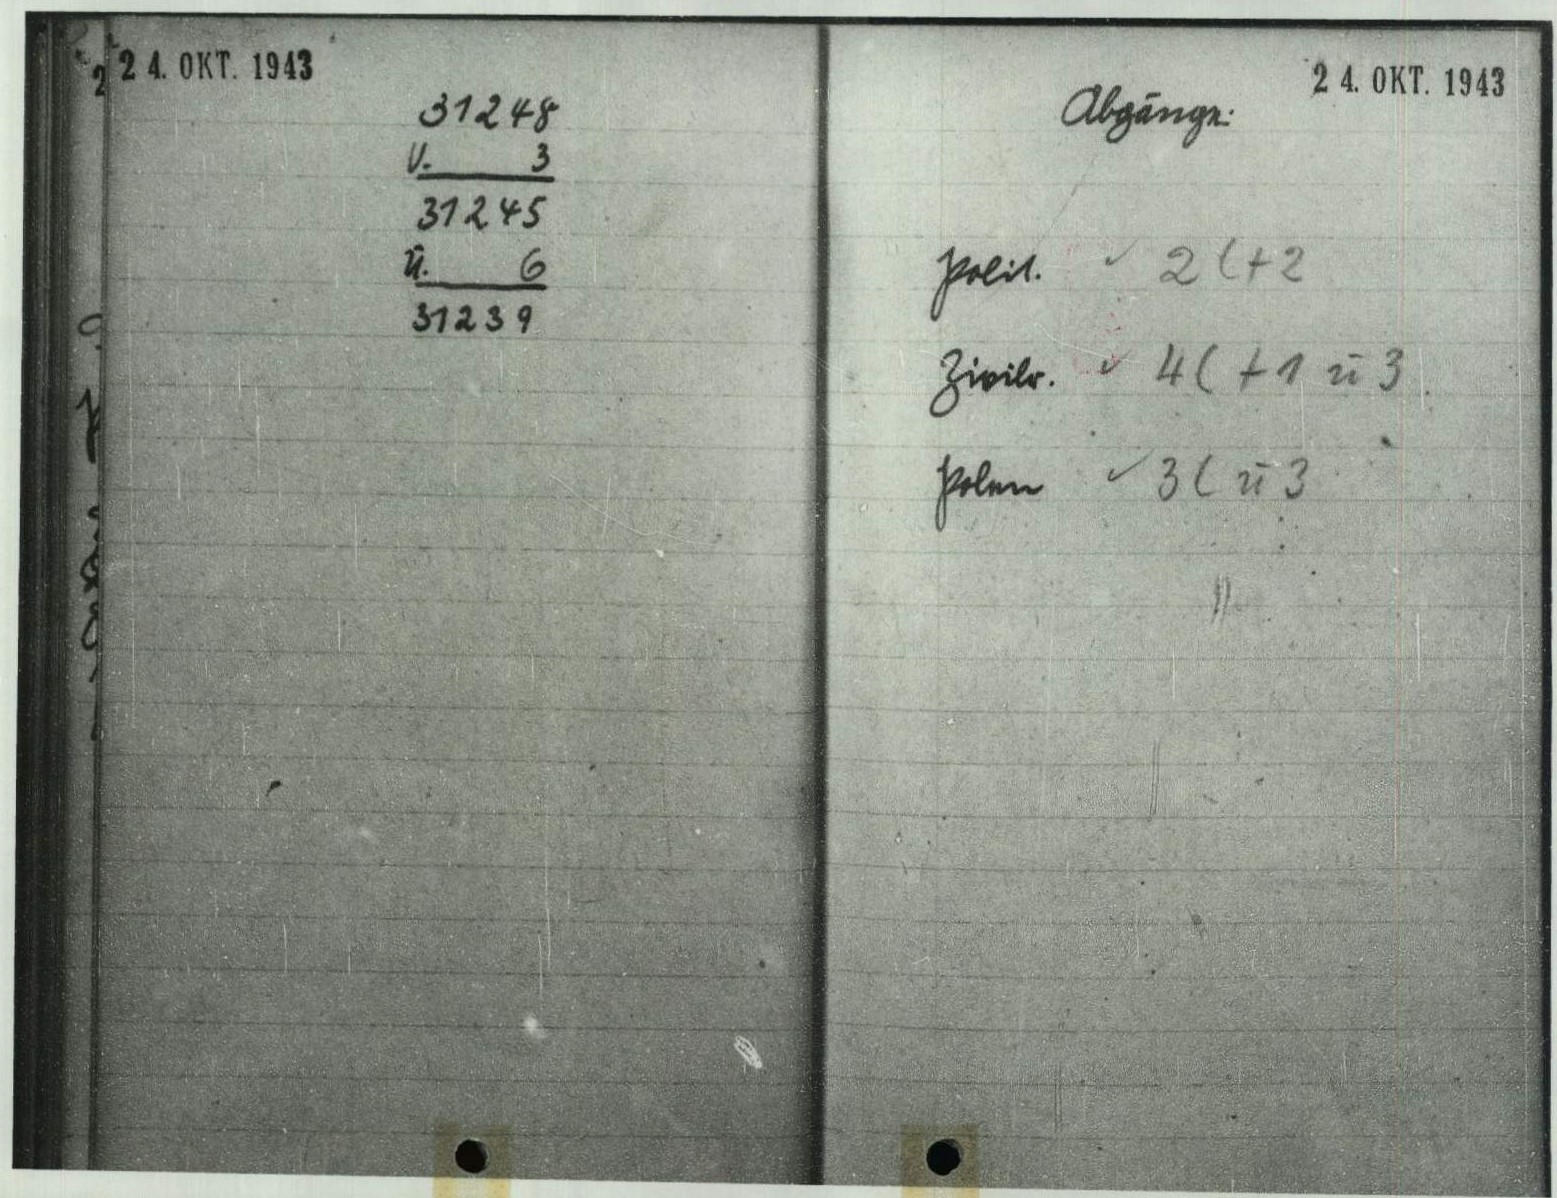 24. OKT. 1943
31248
V. 3
31245
Ü. 6
31239
24. OKT. 1943
Abgänge:
Polit. ✓ 2 (+2
Zivilr. ✓ 4 (+1 ü 3
Polen ✓ 3 ( ü 3